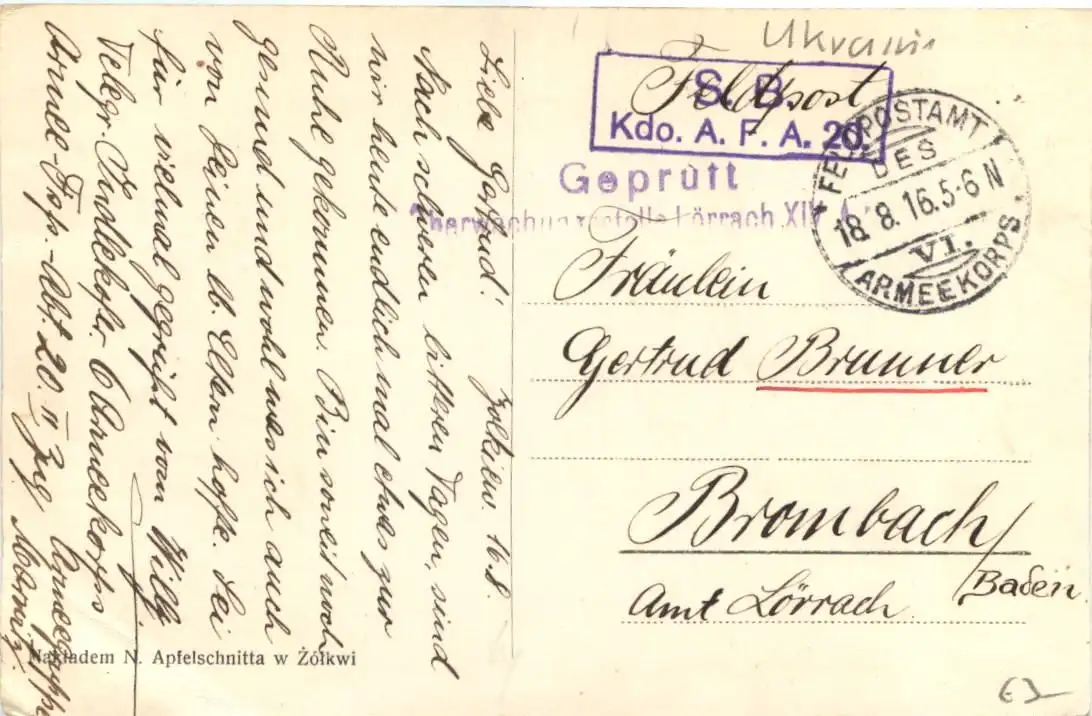 Ukrain
Feldpost
S. B.
Kdo. A. F. A. 20.
Geprüft
Überwachungsstelle Lörrach XIV. A.
FELDPOSTAMT
DES
18. 8. 16. 5-6 N
VI.
ARMEEKORPS
Fräulein
Gertrud Brunner
Brombach/
Baden.
Amt Lörrach.
Zolkiew. 16.8.
Liebe Gertrud!
Nach schweren bitteren Tagen, sind
wir heute endlich mal etwas zur
Ruhe gekommen. Bin soweit noch
gesund und wohl was ich auch
von Deinen lb. Eltern hoffe. Sei
für vielmal gegrüßt von Willy
Telegr. 6 Armeekorps
Armee-Fesp.-Abt 20. II Zug Armeegruppe
Marwitz.
Nakładem N. Apfelschnitta w Żółkwi